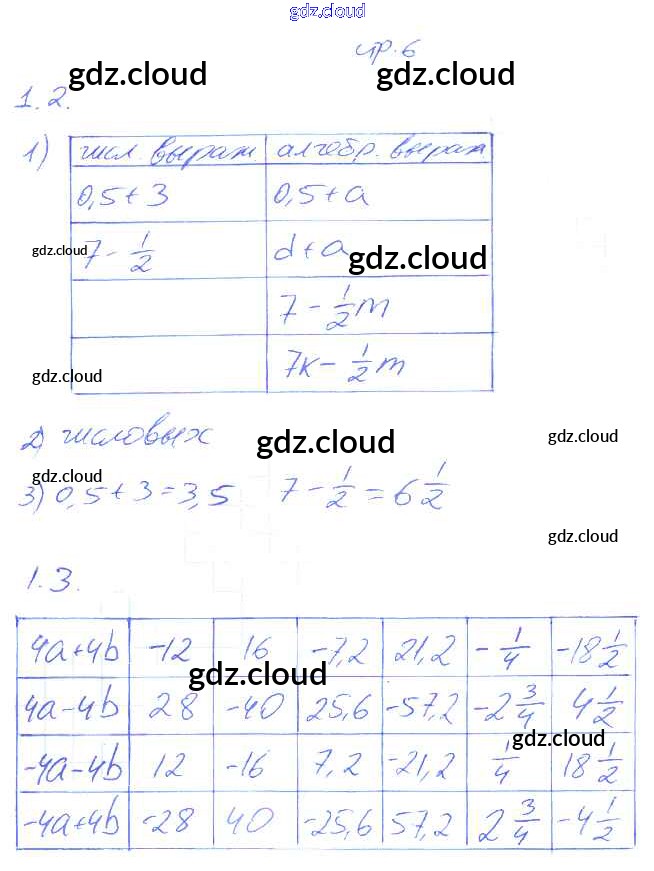 gdz.cloud
стр. 6
gdz.cloud gdz.cloud
1.2.
1) числ. выраж. алгебр. выраж
0,5 + 3 0,5 + a
gdz.cloud 7 - 1/2 d + a gdz.cloud
7 - 1/2 m
gdz.cloud 7к - 1/2 m
2) числовых gdz.cloud gdz.cloud
gdz.cloud
3) 0,5 + 3 = 3,5 7 - 1/2 = 6 1/2
gdz.cloud
1.3.
4a+4b -12 16 -7,2 21,2 - 1/4 -18 1/2
gdz.cloud
4a-4b 28 -40 25,6 -57,2 -2 3/4 4 1/2
gdz.cloud
-4a-4b 12 -16 7,2 -21,2 1/4 18 1/2
-4a+4b -28 40 -25,6 57,2 2 3/4 -4 1/2